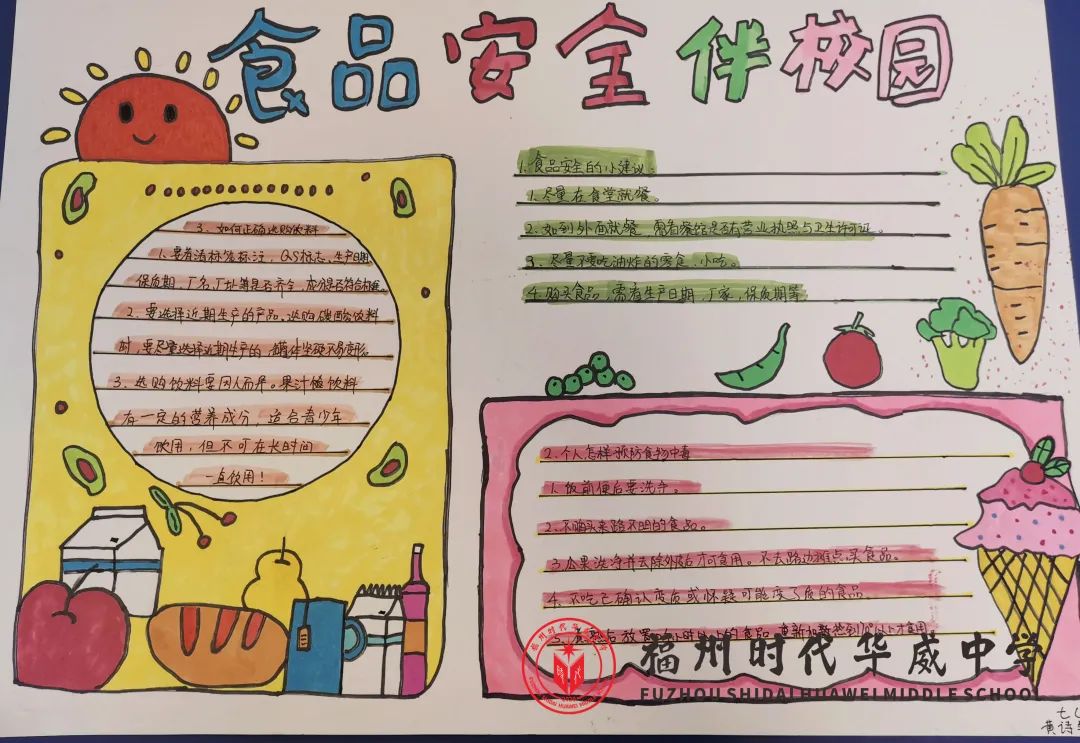 食品安全伴校园
1.食品安全的小建议:
1.尽量在食堂就餐。
2.如到外面就餐,需看餐馆是否有营业执照与卫生许可证。
3.尽量不要吃油炸的零食、小吃。
4.购买食品,需看生产日期,厂家,保质期等
3.如何正确选购饮料
1.要看清标签标注,QS标志、生产日期
保质期、厂名、厂址等是否齐全,成分是否符合标准。
2.要选择近期生产的产品。选购碳酸饮料
时,要尽量选择近期生产的、罐体坚硬不易变形。
3.选购饮料要因人而异。果汁储饮料
有一定的营养成分,适合青少年
饮用,但不可在长时间
一直饮用!
2.个人怎样预防食物中毒
1.饭前便后要洗手。
2.不购买来路不明的食品。
3.瓜果洗净并去除外皮后才可食用。不去路边摊点买食品。
4.不吃已确认变质或怀疑可能变了质的食品
5.
后放置
小时
的食品
重新加
才食用
福州时代华威中学
FUZHOU SHIDAI HUAWEI MIDDLE SCHOOL
七
黄诗